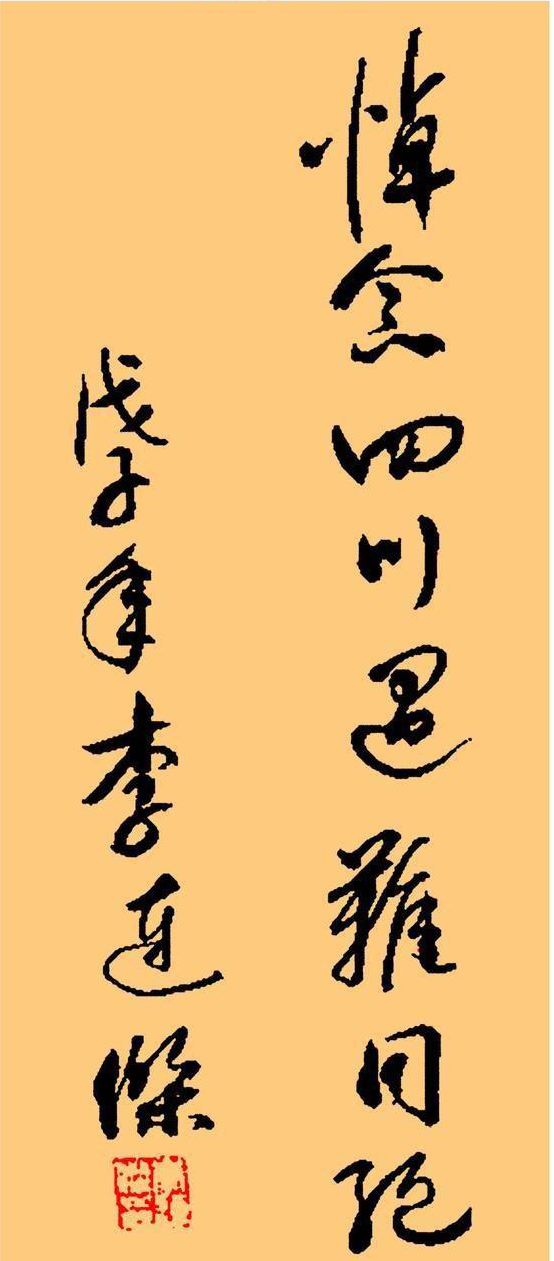 悼念四川遇難同胞
戊子年李连傑